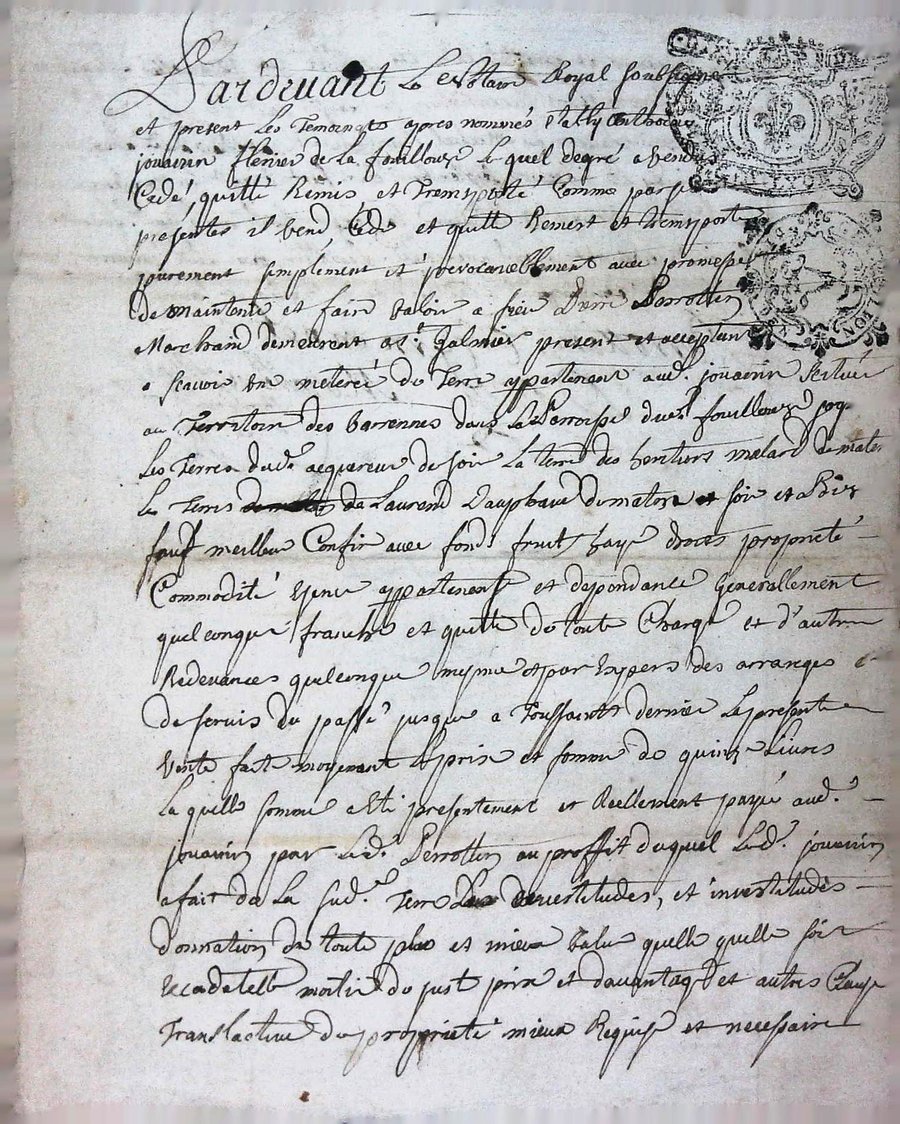 Pardevant Le Notaire Royal soubsigné
et present Les Temoingts apres nommés Estably Anthoine
jouanin fermier de La fouillouze Lequel degré a vendus
Cedé, quitté Remis et Tremsporté Comme par se
presentes il vend Cede et quitte Remest et Tremsporte
purement simplement et jrevocarellement avec promesse
de maintenir et faire valoir a sieur Pierre Perrottin
Marchand demeurent a st. Galmier present et acceptant
a scavoir une meteree de Terre appartenent aud. jouanin scitué
au Territoire des Varrennes dans La Parroisse de st fouillouze jog
Les Terres dud. acquereur de soir La terre des heritiers malard de matin
Le Terres de Laurend Dauphane de matin et soir et Bize
sauf meilleur Confin avec fond. fruit haye droits proprieté
Commodité ysue appartenent et dependance Generallement
quelconque franche et quitte de toute Charge et d'autre
Redevances quelconque mesme des arranges
de servis du passé jusque a Toussaints dernier La presente
vente fait moyenant Le prix et somme de quinze Livres
La quelle somme a Eté presentement et Reellement payée aud.
jouanin par Led. Perrottin au proffit duquel Led. jouanin
a fait de La sud. Terre devestitudes, et investitudes
donnation de toute plus et mieux value quelle quelle soit
Excedatelle moitié du just prix et davantage et autres Clause
Translactive de proprieté mieux Requise et necessaire